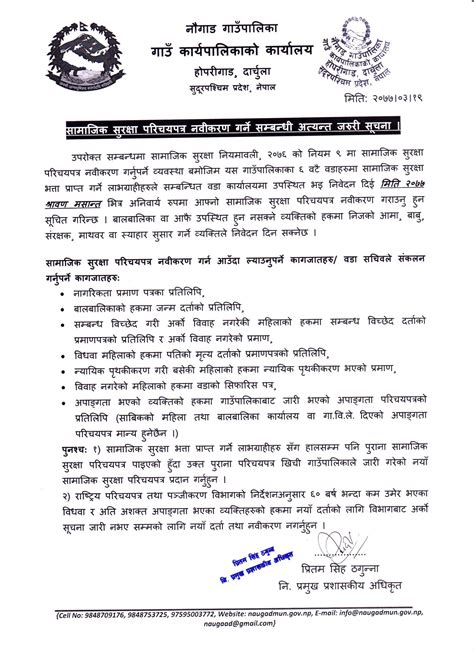 नौगाड गाउँपालिका
गाउँ कार्यपालिकाको कार्यालय
होपरीगाड, दार्चुला
सुदूरपश्चिम प्रदेश, नेपाल
नौगाड गाउँपालिका
गाउँ कार्यपालिकाको कार्यालय
होपरीगाड, दार्चुला
सुदूरपश्चिम प्रदेश, नेपाल
मिति: २०७७।०३।१९
सामाजिक सुरक्षा परिचयपत्र नवीकरण गर्ने सम्बन्धी अत्यन्त जरुरी सूचना ।
उपरोक्त सम्बन्धमा सामाजिक सुरक्षा नियमावली, २०७६ को नियम ९ मा सामाजिक सुरक्षा
परिचयपत्र नवीकरण गर्नुपर्ने व्यवस्था बमोजिम यस गाउँपालिकाका ६ वटै वडाहरुमा सामाजिक सुरक्षा
भत्ता प्राप्त गर्ने लाभग्राहीहरुले सम्बन्धित वडा कार्यालयमा उपस्थित भइ निवेदन दिई मिति २०७७
श्रावण मसान्त भित्र अनिवार्य रुपमा आफ्नो सामाजिक सुरक्षा परिचयपत्र नवीकरण गराउनु हुन
सूचित गरिन्छ । बालबालिका वा आफै उपस्थित हुन नसक्ने व्यक्तिको हकमा निजको आमा, बाबु,
संरक्षक, माथवर वा स्याहार सुसार गर्ने व्यक्तिले निवेदन दिन सक्नेछ ।
सामाजिक सुरक्षा परिचयपत्र नवीकरण गर्न आउँदा ल्याउनुपर्ने कागजातहरु/ वडा सचिवले संकलन
गर्नुपर्ने कागजातहरु:
• नागरिकता प्रमाण पत्रका प्रतिलिपि,
• बालबालिकाको हकमा जन्म दर्ताको प्रतिलिपि,
• सम्बन्ध विच्छेद गरी अर्को विवाह नगरेकी महिलाको हकमा सम्बन्ध विच्छेद दर्ताको
प्रमाणपत्रको प्रतिलिपि र अर्को विवाह नगरेको प्रमाण,
• विधवा महिलाको हकमा पतिको मृत्य दर्ताको प्रमाणपत्रको प्रतिलिपि,
• न्यायिक पृथकीकरण गरी बसेकी महिलाको हकमा न्यायिक पृथकीकरण भएको प्रमाण,
• विवाह नगरेको महिलाको हकमा वडाको सिफारिस पत्र,
• अपाङ्गता भएको व्यक्तिको हकमा गाउँपालिकाबाट जारी भएको अपाङ्गता परिचयपत्रको
प्रतिलिपि (साबिकको महिला तथा बालबालिका कार्यालय वा गा.वि.ले. दिएको अपाङ्गता
परिचयपत्र मान्य हुनेछैन ।)
पुनश्च: १) सामाजिक सुरक्षा भत्ता प्राप्त गर्ने लाभग्राहीहरु सँग हालसम्म पनि पुराना सामाजिक
सुरक्षा परिचयपत्र पाइएको हुँदा उक्त पुराना परिचयपत्र खिची गाउँपालिकाले जारी गरेको नयाँ
सामाजिक सुरक्षा परिचयपत्र प्रदान गर्नुहुन ।
२) राष्ट्रिय परिचयपत्र तथा पञ्जीकरण विभागको निर्देशनअनुसार ६० बर्ष भन्दा कम उमेर भएका
विधवा र अति अशक्त अपाङ्गता भएका व्यक्तिहरुको हकमा नयाँ दर्ताको लागि विभागबाट अर्को
सूचना जारी नभए सम्मको लागि नयाँ दर्ता तथा नवीकरण नगर्नुहुन ।
प्रितम सिंह ठगुन्ना
नि. प्रमुख प्रशासकीय अधिकृत
प्रितम सिंह ठगुन्ना
नि. प्रमुख प्रशासकीय अधिकृत
(Cell No: 9848709176, 9848753725, 97595003772, Website: naugadmun.gov.np, E-mail: info@naugadmun.gov.np,
naugaad@gmail.com)